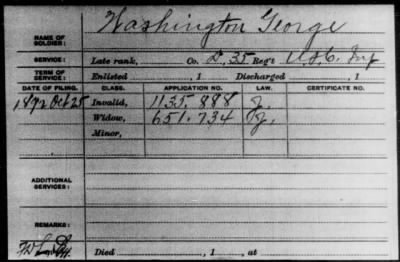 NAME OF SOLDIER: Washington George
SERVICE: Late rank, Co. D, 35 Reg't U.S.C. Inf
TERM OF SERVICE: Enlisted , 1 Discharged , 1
DATE OF FILING. CLASS. APPLICATION NO. LAW. CERTIFICATE NO.
1892 Oct 25 Invalid, 1135.888 J.
Widow, 651.734 J.
Minor,
ADDITIONAL SERVICES:
REMARKS:
Died , 1 , at